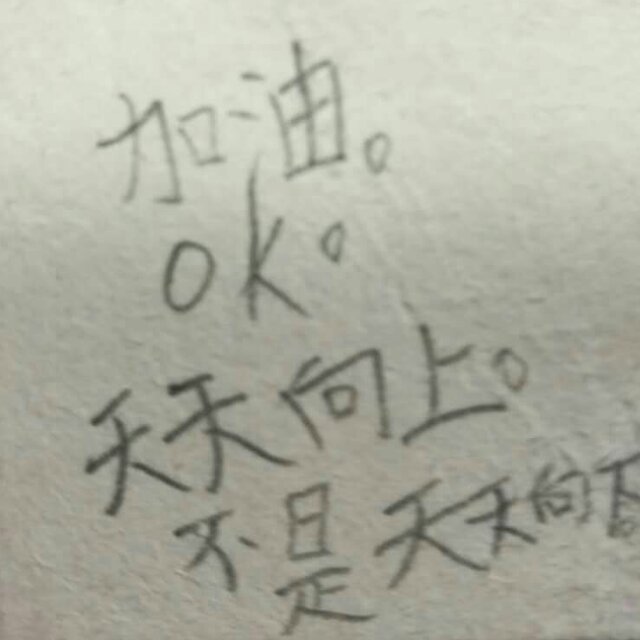 加油。
OK。
天天向上。
不是天天向